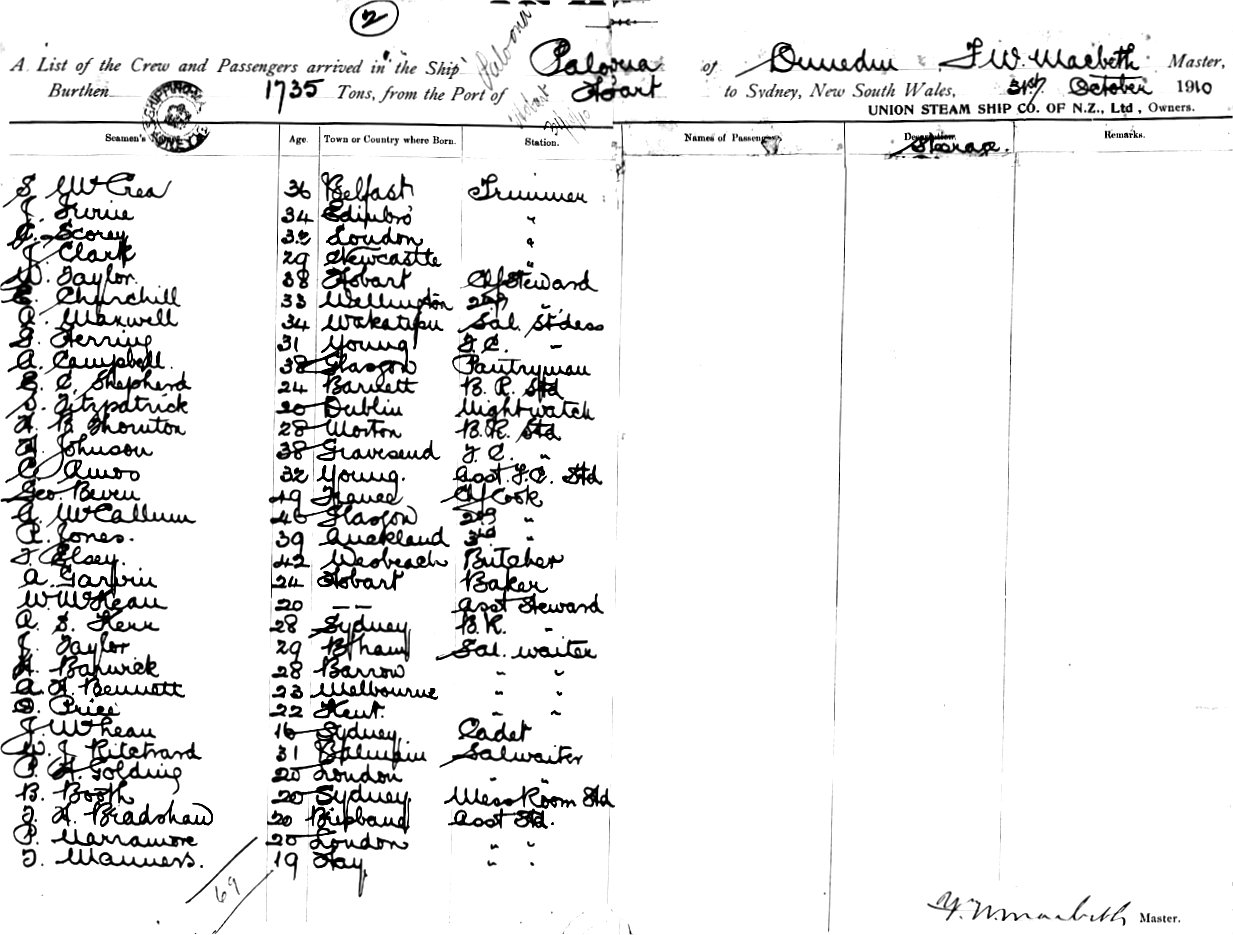 2
Paloona
Hobart
A List of the Crew and Passengers arrived in the Ship Paloona of Dunedin F. W. Macbeth Master,
Burthen 1735 Tons, from the Port of Hobart to Sydney, New South Wales, 31st October 1910
UNION STEAM SHIP CO. OF N.Z., Ltd, Owners.
Seamen's Age. Town or Country where Born. Station. Names of Passengers Designation. Remarks.
Steerage.
S. McCrea 36 Belfast Trimmer
J. 34 Edinbro' "
Scorey 32 London "
J. Clark 29 Newcastle "
W. Taylor 38 Hobart Cf Steward
Churchill 33 Wellington 2nd "
Maxwell 34 Wakatipu Sal. St'dess
Herring 31 Young F.C. "
A. Campbell. 38 Glasgow Pantryman
C. Shepherd 24 Barnett B. R. Std
Fitzpatrick 20 Dublin Nightwatch
H. B. Thornton 28 Morton B.R. Std
Johnson 38 Gravesend F. C. "
C. Amos 32 Young. Asst. F.C. Std
Geo. Beven 49 France Cf Cook
A. McCallum 46 Glasgow 2nd "
R. Jones. 39 Auckland 3rd "
F. Elsey. 42 Wesbeach Butcher
A. Garvin 24 Hobart Baker
W McKean 20 — — Asst Steward
R. S. Kerr 28 Sydney B.R. "
J. Taylor 29 B'ham Sal. waiter
Barwick 28 Barrow " "
A. H. Bennett 23 Melbourne " "
D. Price 22 Kent. " "
J. McKeau 16 Sydney Cadet
W. J. 31 Balmain Sal waiter
P. H. Golding 20 London " "
B. Booth 20 Sydney Mess Room Std
J. H. Bradshaw 20 Brisbane Asst Std.
P. Marramore 20 London " "
T. Manners. 19 Hay " "
69
F. W. Macbeth Master.